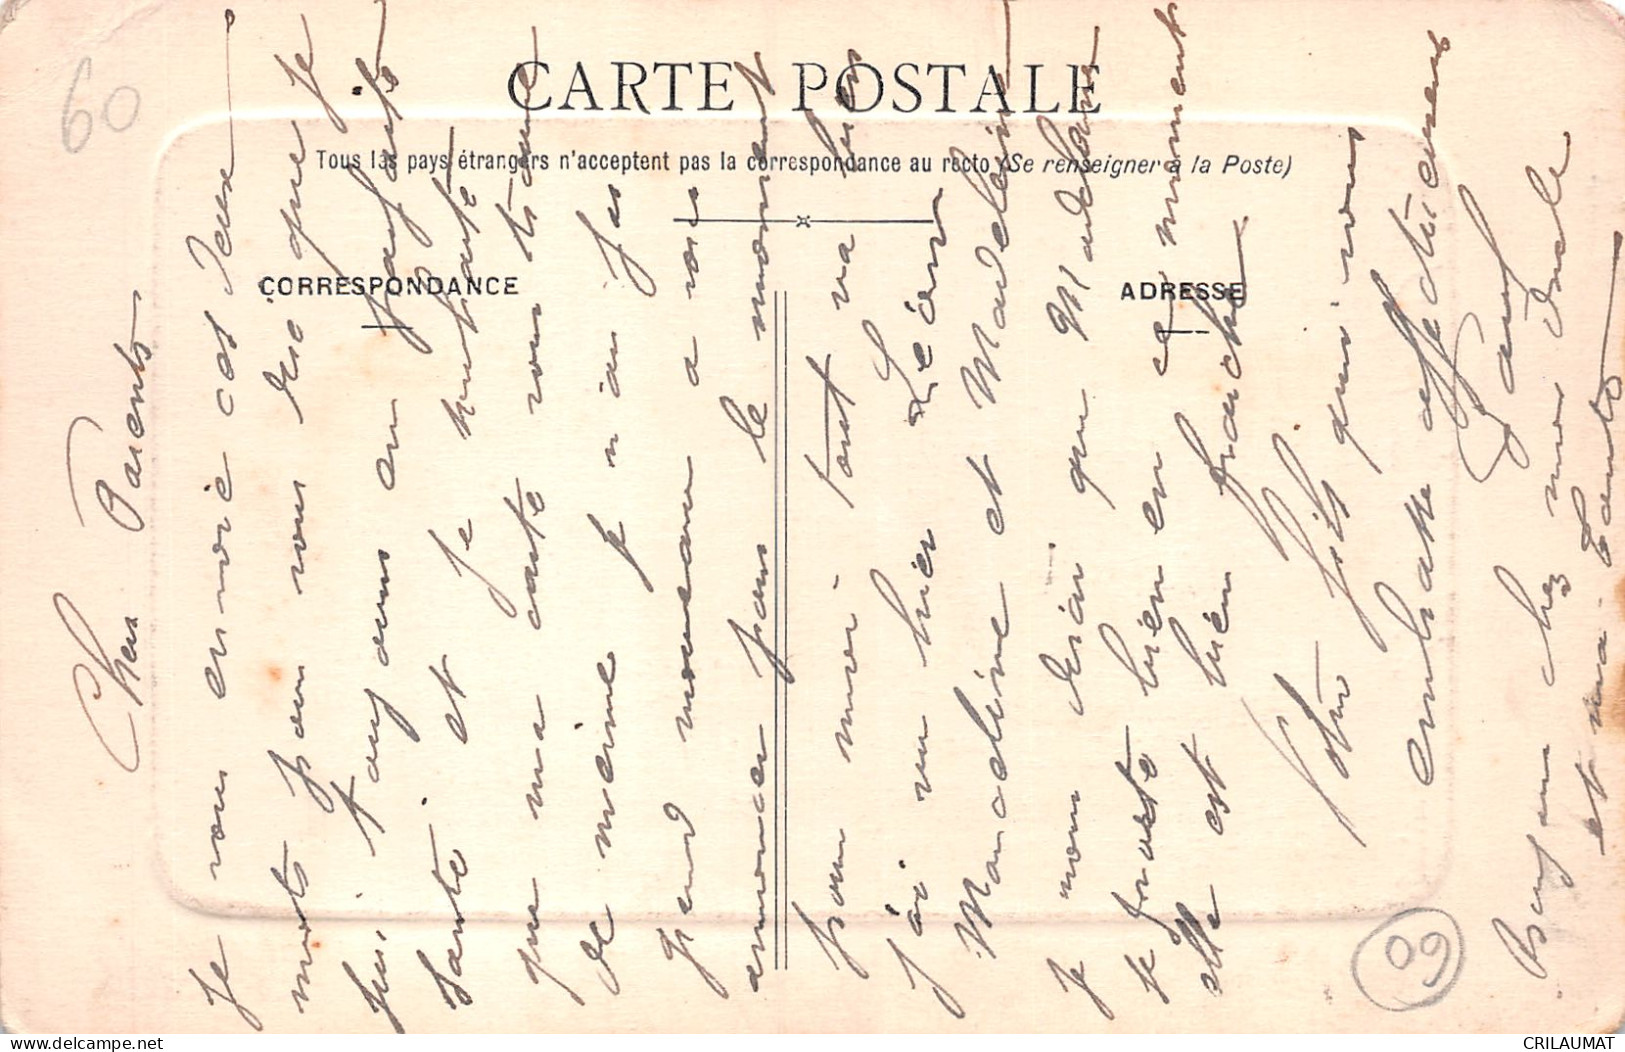 60
CARTE POSTALE
Tous les pays étrangers n'acceptent pas la correspondance au recto (Se renseigner à la Poste)
CORRESPONDANCE
ADRESSE
Chers Parents
Je vous envoie ces deux
mots pour vous dire que Je
suis toujours en parfaite
santé et Je souhaite
que ma carte vous trouve
de meime Je n'ai pas
grend nouveau a vous
annoncer pour le moment
pour moi tout va bien
j'ai vu hier Léon
Madeleine et Madeleine
Je vous dirai que
se porte bien en ce moment
elle est bien
Votre fils qui vous
embrasse affectueusement
Bonjour chez mon oncle
et ma tante
09
CRILAUMAT